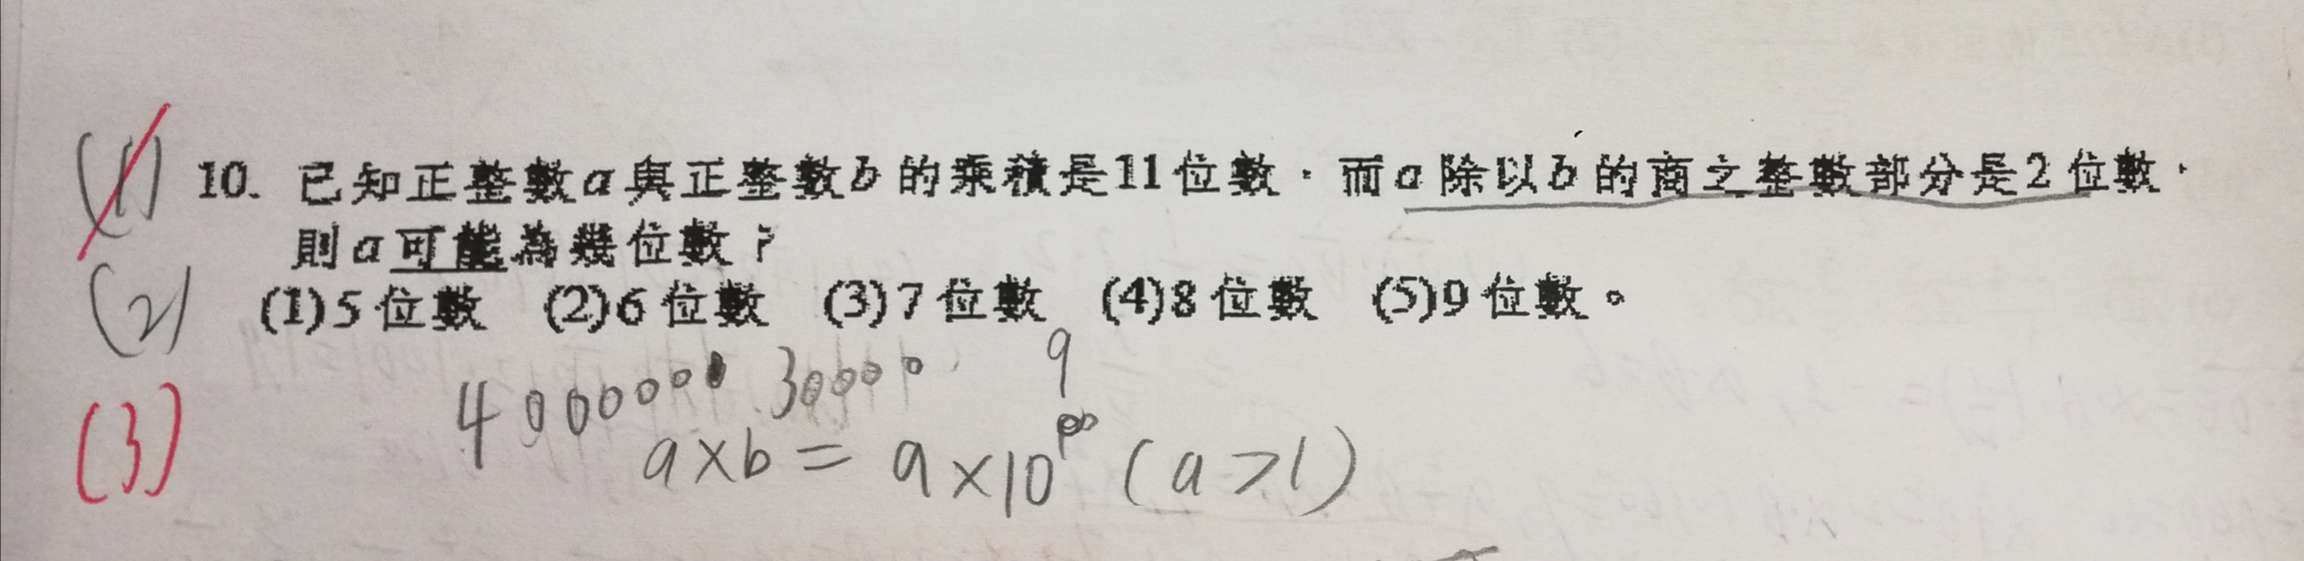 (1) 10. 已知正整數a與正整數b的乘積是11位數，而a除以b的商之整數部分是2位數，
則a可能為幾位數？
(2) (1)5位數 (2)6位數 (3)7位數 (4)8位數 (5)9位數。
4000000 30000 9
(3) a×b = a×10 (a>1)